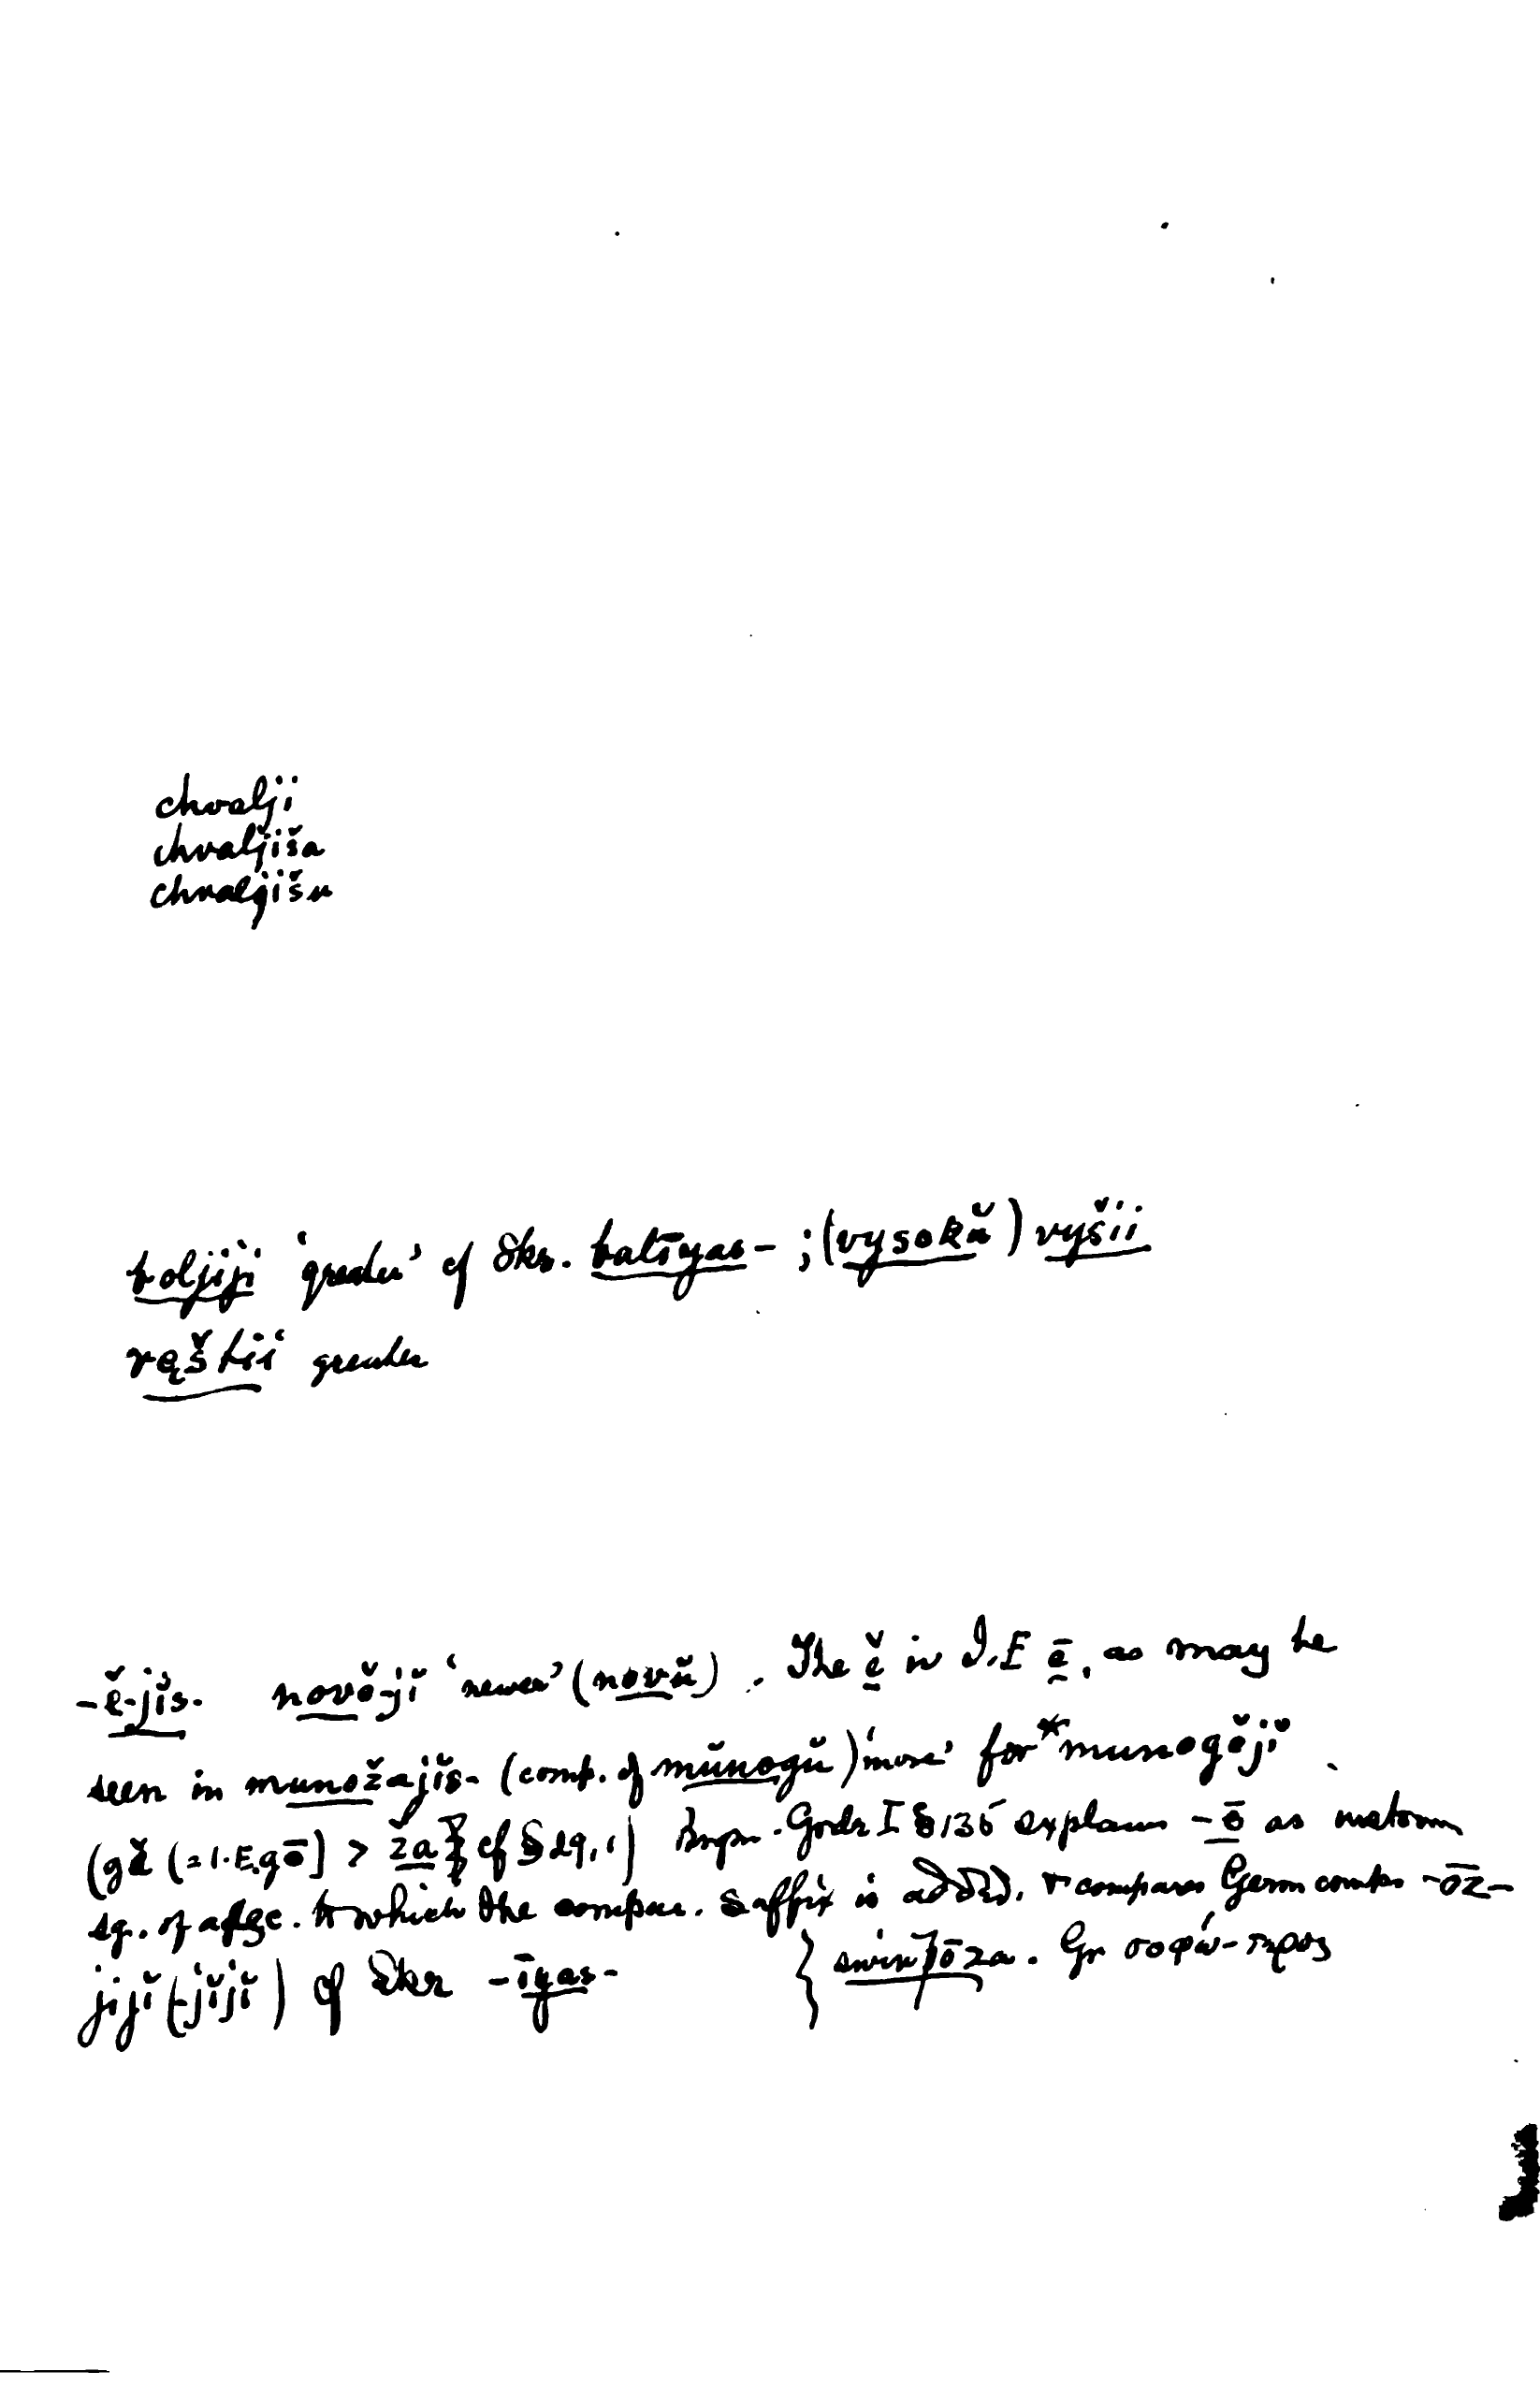 chvalji
chvaljiša
chvaljišu
boljiji 'greater' cf Skr. balīyas- ; (vysokŭ) vyšii
vęštii greater
-ě-jĭs- nově-jĭ 'newer' (novŭ). The ě is I.E ē, as may be
seen in munožajĭs- (comp. of mŭnogŭ) 'more' for *munogějĭ
(gě (= I.E. gō) > ža cf § 29,1) Grdr I § 135 explains -ō as instrum
sg. of adjec. to which the compar. suffix is added, & compares Germ comps -ōz-
jijĭ (-jĭjĭ) cf Skr -īyas- } swinþōza. Gr σοφώ-τερος